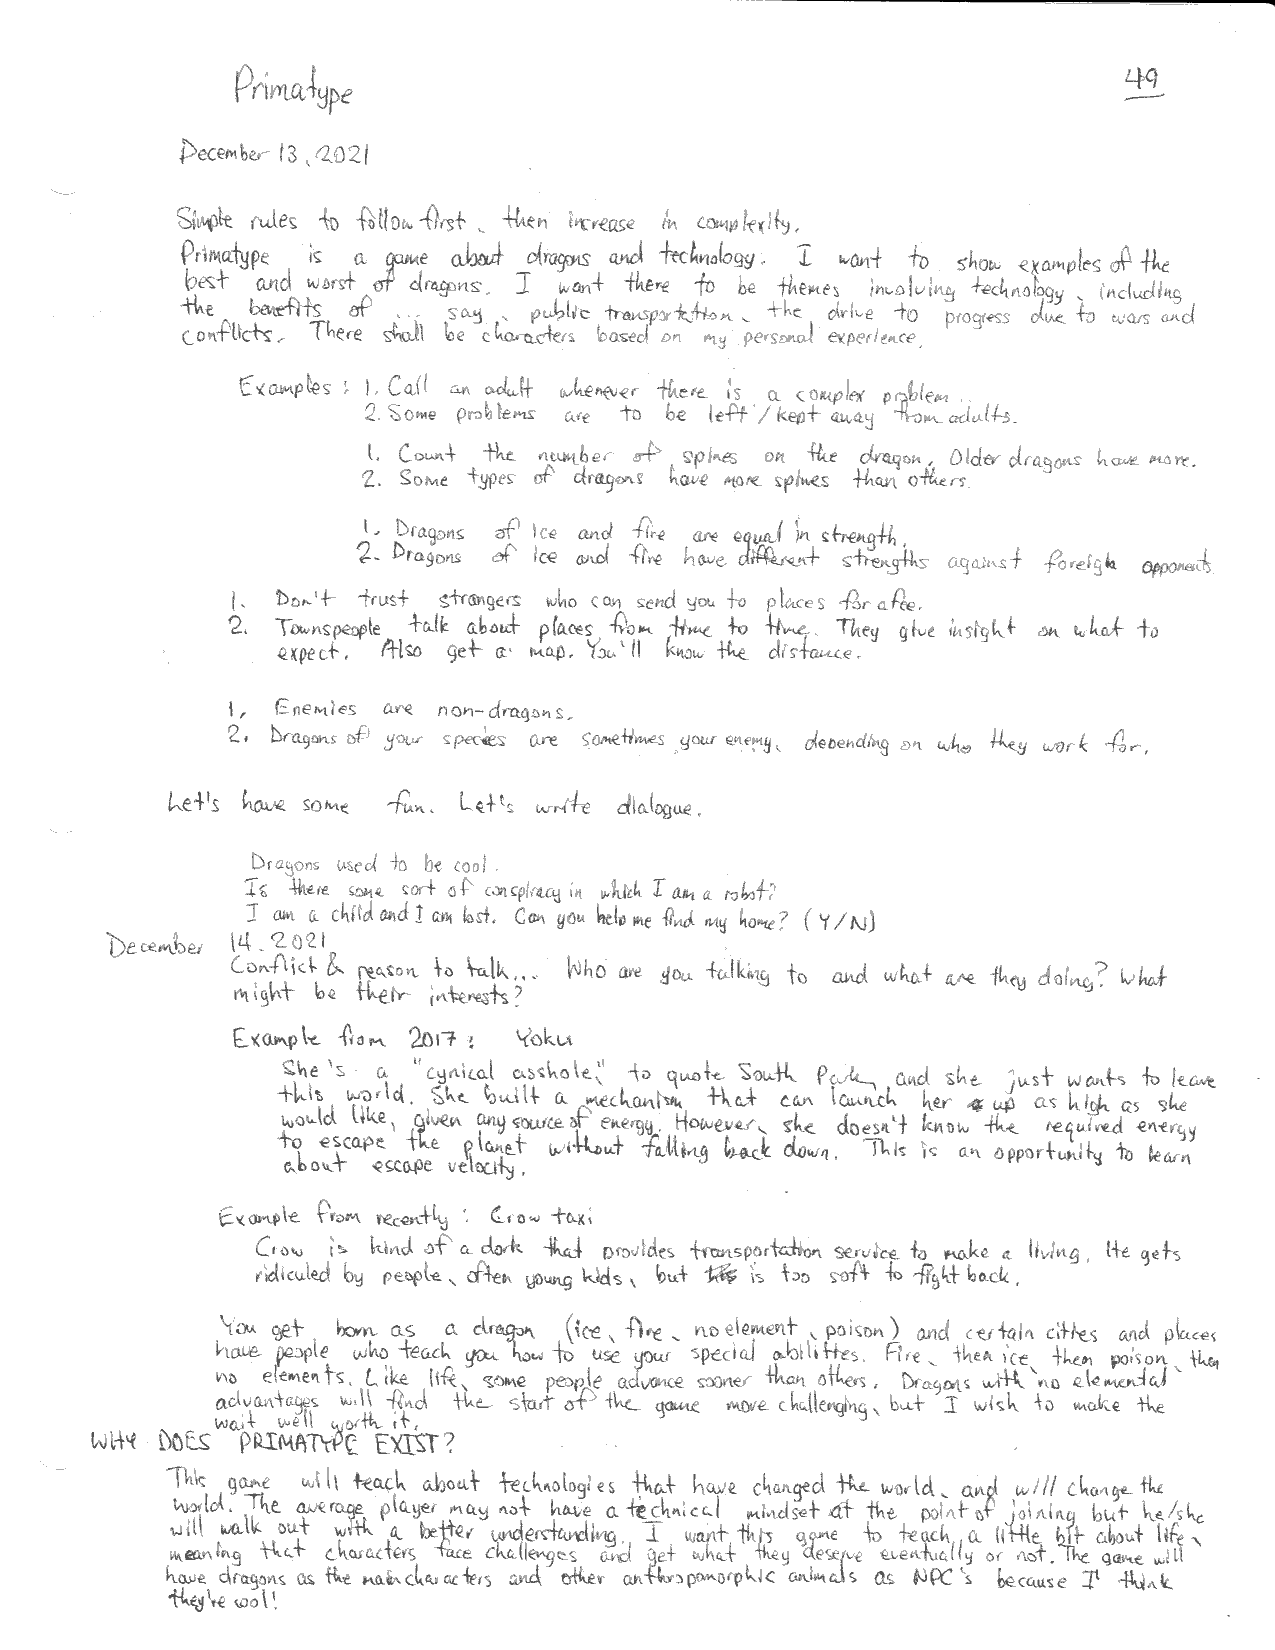 Primatype
49
December 13, 2021
Simple rules to follow first, then increase in complexity.
Primatype is a game about dragons and technology. I want to show examples of the
best and worst of dragons. I want there to be themes involving technology, including
the benefits of ... say, public transportation, the drive to progress due to wars and
conflicts. There shall be characters based on my personal experience.
Examples: 1. Call an adult whenever there is a complex problem.
2. Some problems are to be left/kept away from adults.
1. Count the number of spines on the dragon, Older dragons have more.
2. Some types of dragons have more spines than others.
1. Dragons of ice and fire are equal in strength.
2. Dragons of ice and fire have different strengths against foreign opponents.
1. Don't trust strangers who can send you to places for a fee.
2. Townspeople talk about places from time to time. They give insight on what to
expect. Also get a map. You'll know the distance.
1. Enemies are non-dragons.
2. Dragons of your species are sometimes your enemy, depending on who they work for.
Let's have some fun. Let's write dialogue.
Dragons used to be cool.
Is there some sort of conspiracy in which I am a robot?
I am a child and I am lost. Can you help me find my home? (Y/N)
December 14, 2021
Conflict & reason to talk... Who are you talking to and what are they doing? What
might be their interests?
Example from 2017: Yoku
She's a "cynical asshole," to quote South Park, and she just wants to leave
this world. She built a mechanism that can launch her up as high as she
would like, given any source of energy. However, she doesn't know the required energy
to escape the planet without falling back down. This is an opportunity to learn
about escape velocity.
Example from recently: Crow taxi
Crow is kind of a dork that provides transportation service to make a living. He gets
ridiculed by people, often young kids, but is too soft to fight back.
You get born as a dragon (ice, fire, no element, poison) and certain cities and places
have people who teach you how to use your special abilities. Fire, then ice, then poison, then
no elements. Like life, some people advance sooner than others. Dragons with no elemental
advantages will find the start of the game more challenging, but I wish to make the
wait well worth it.
WHY DOES PRIMATYPE EXIST?
This game will teach about technologies that have changed the world, and will change the
world. The average player may not have a technical mindset at the point of joining but he/she
will walk out with a better understanding. I want this game to teach a little bit about life,
meaning that characters face challenges and get what they deserve eventually or not. The game will
have dragons as the main characters and other anthropomorphic animals as NPC's because I think
they're cool!